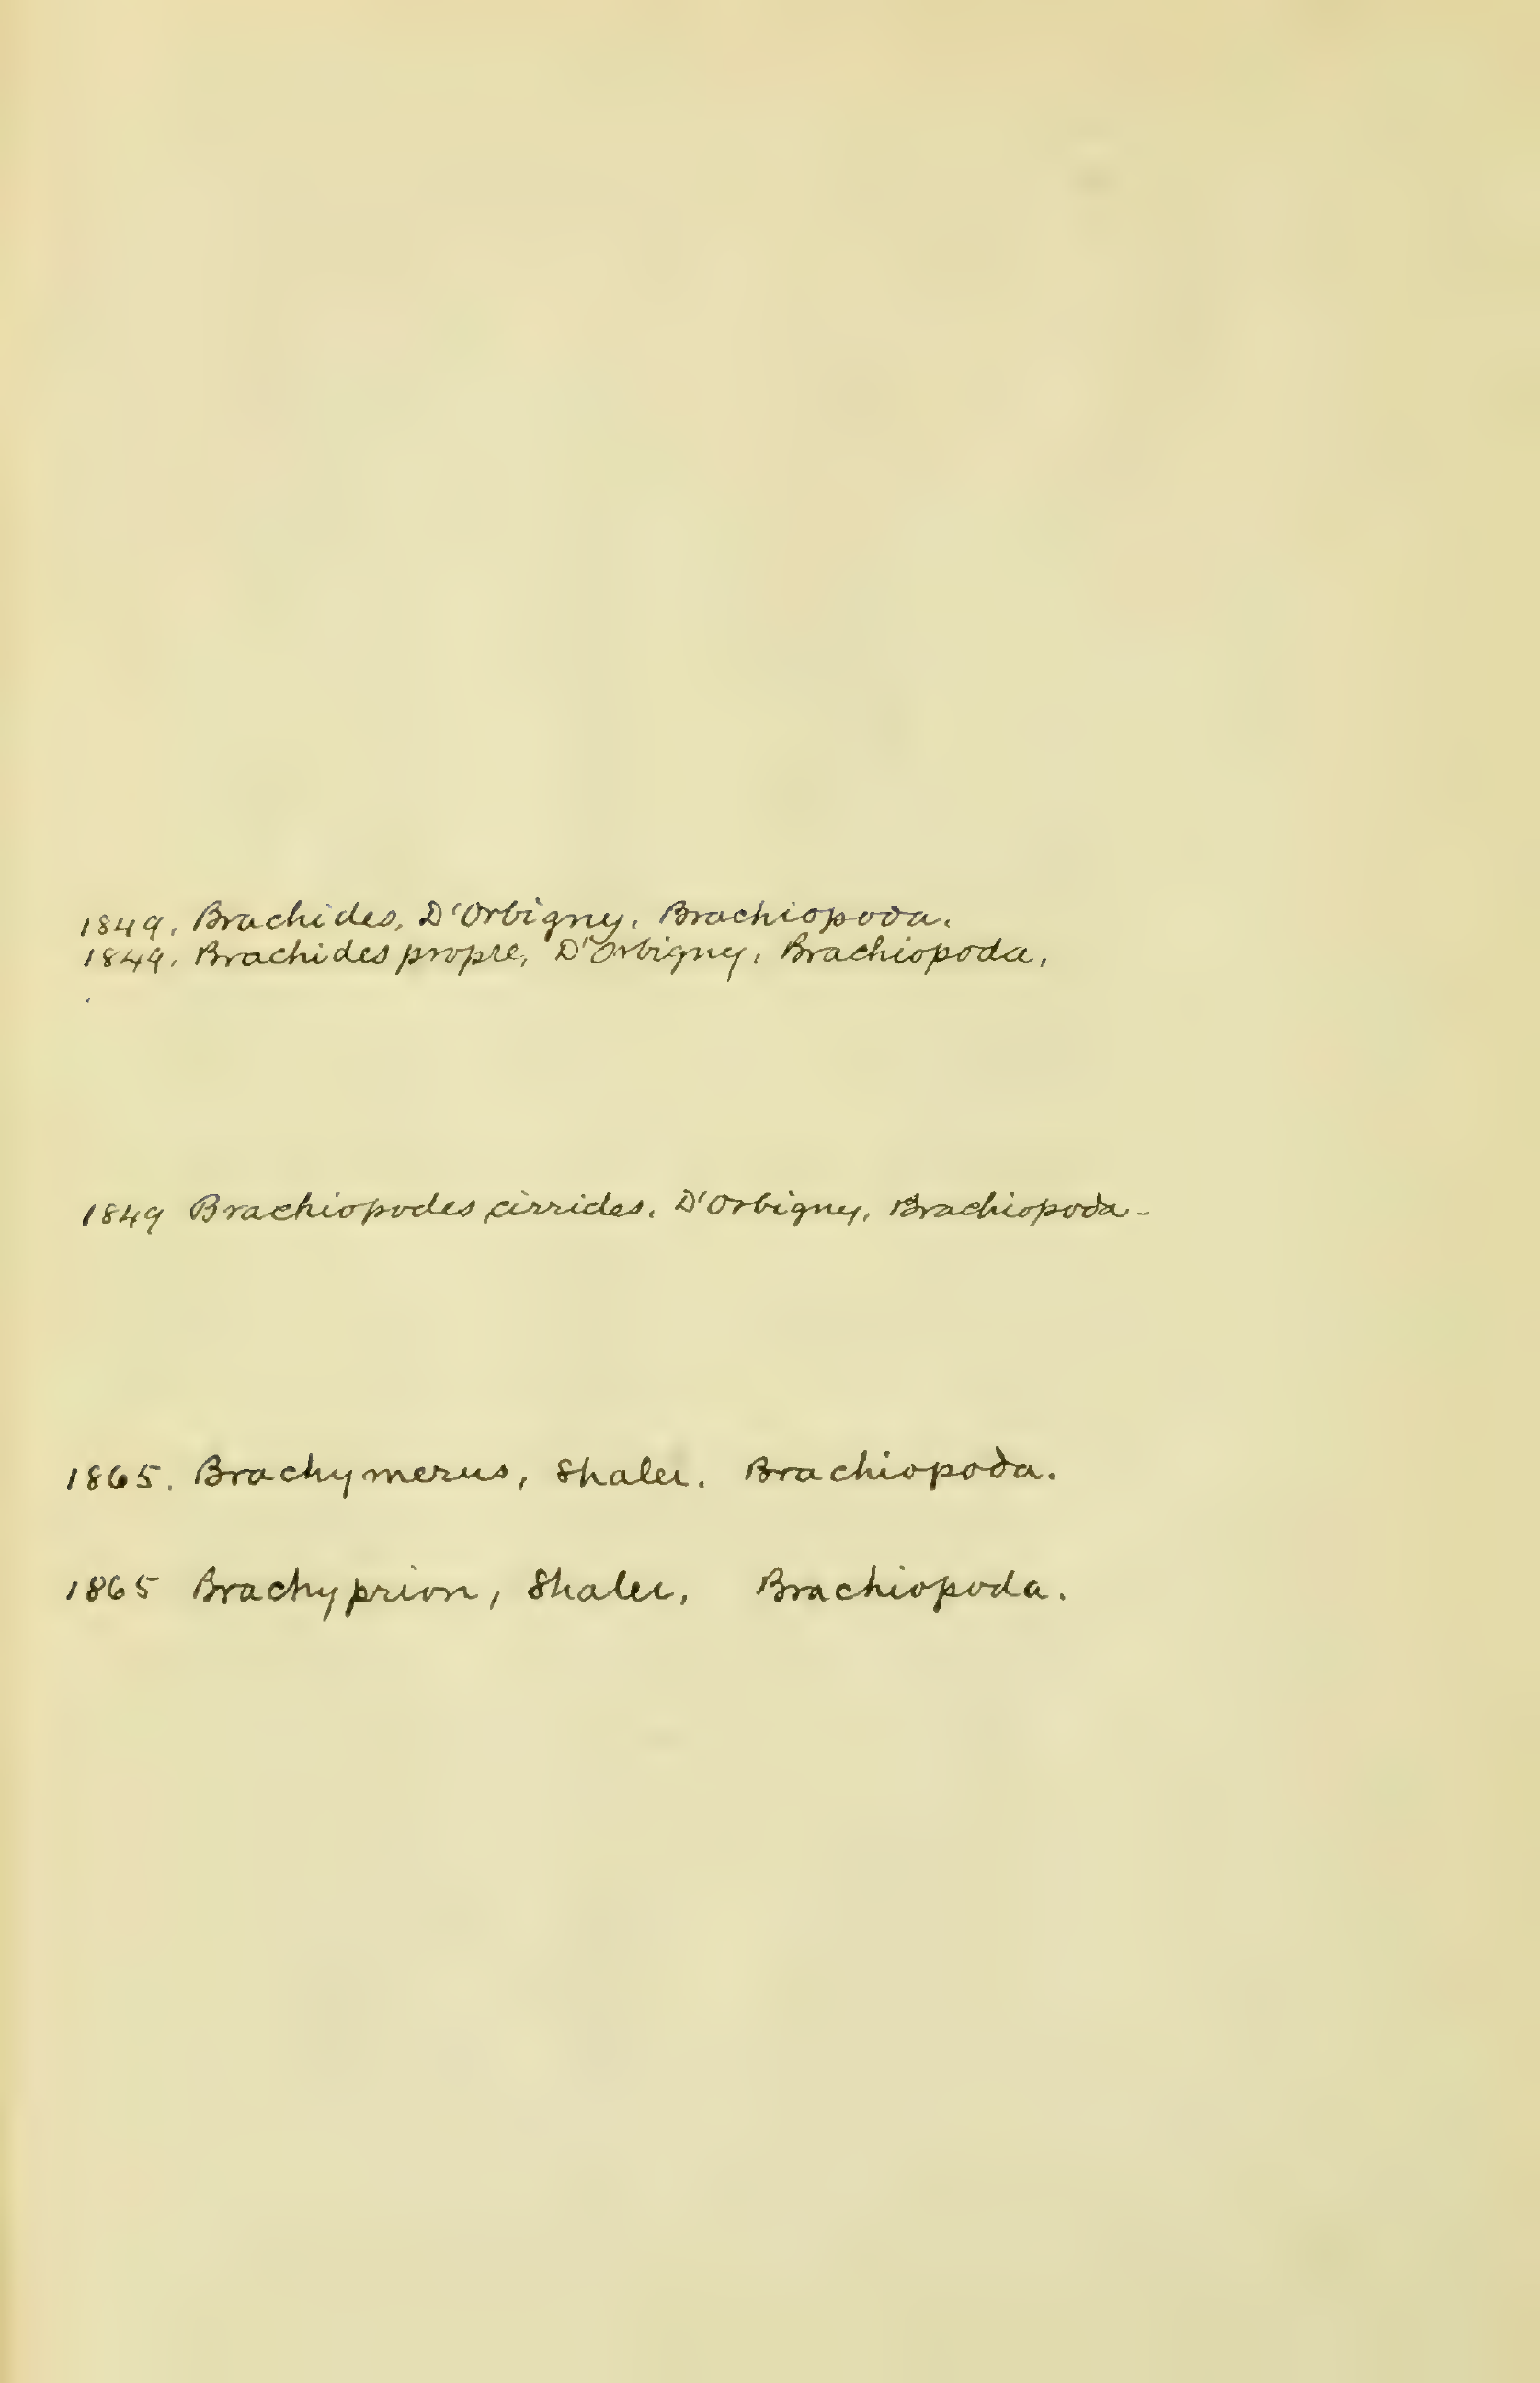 1849. Brachides, D'Orbigny. Brachiopoda.
1849. Brachides propre, D'Orbigny, Brachiopoda,
1849 Brachiopodes cirrides. D'Orbigny, Brachiopoda-
1865. Brachymerus, Shaler. Brachiopoda.
1865 Brachyprion, Shaler, Brachiopoda.